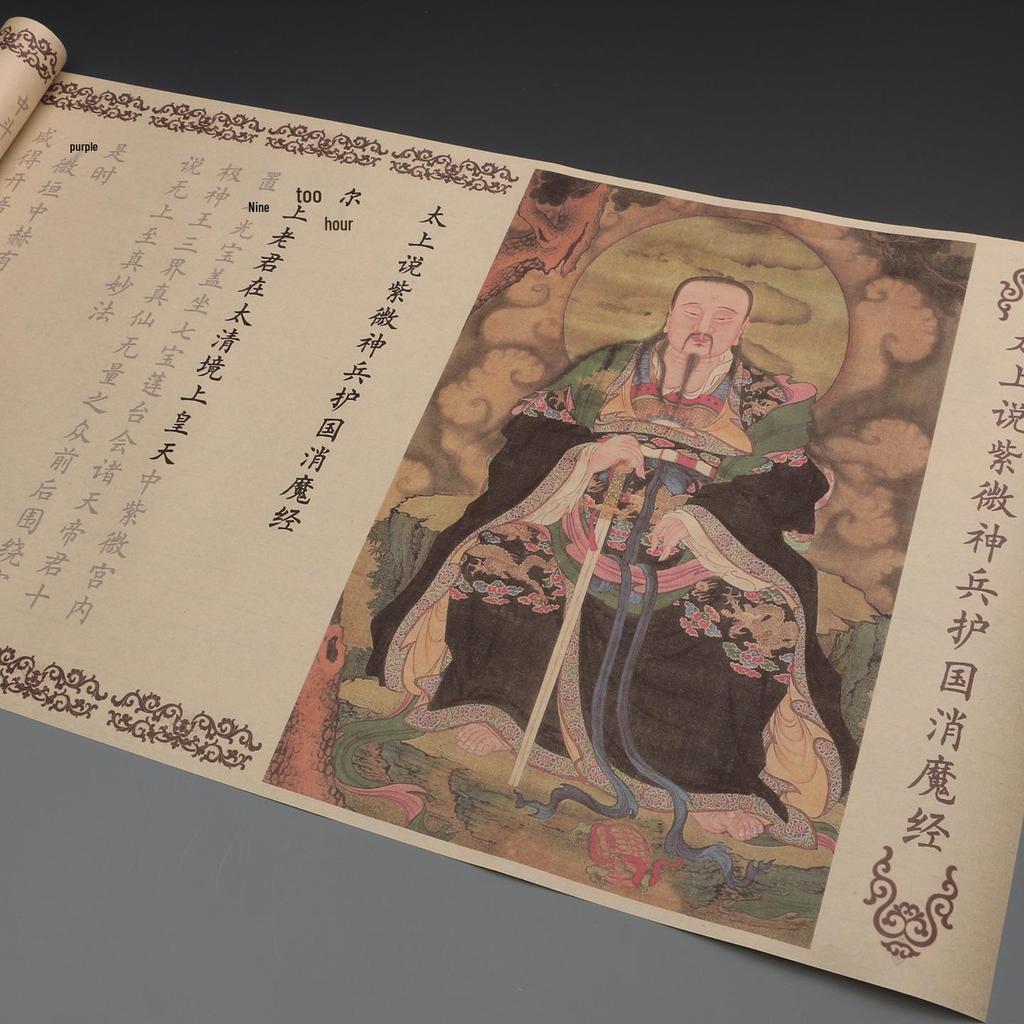 太上说紫微神兵护国消魔经
太上说紫微神兵护国消魔经
尔 hour
too 上老君在太清境上皇天中紫微宫内
置 Nine 光宝盖坐七宝莲台会诸天帝君十
极神王三界真仙无量之众前后围绕
说无上至真妙法
是时
purple 微垣中赫有
咸得开悟
中斗